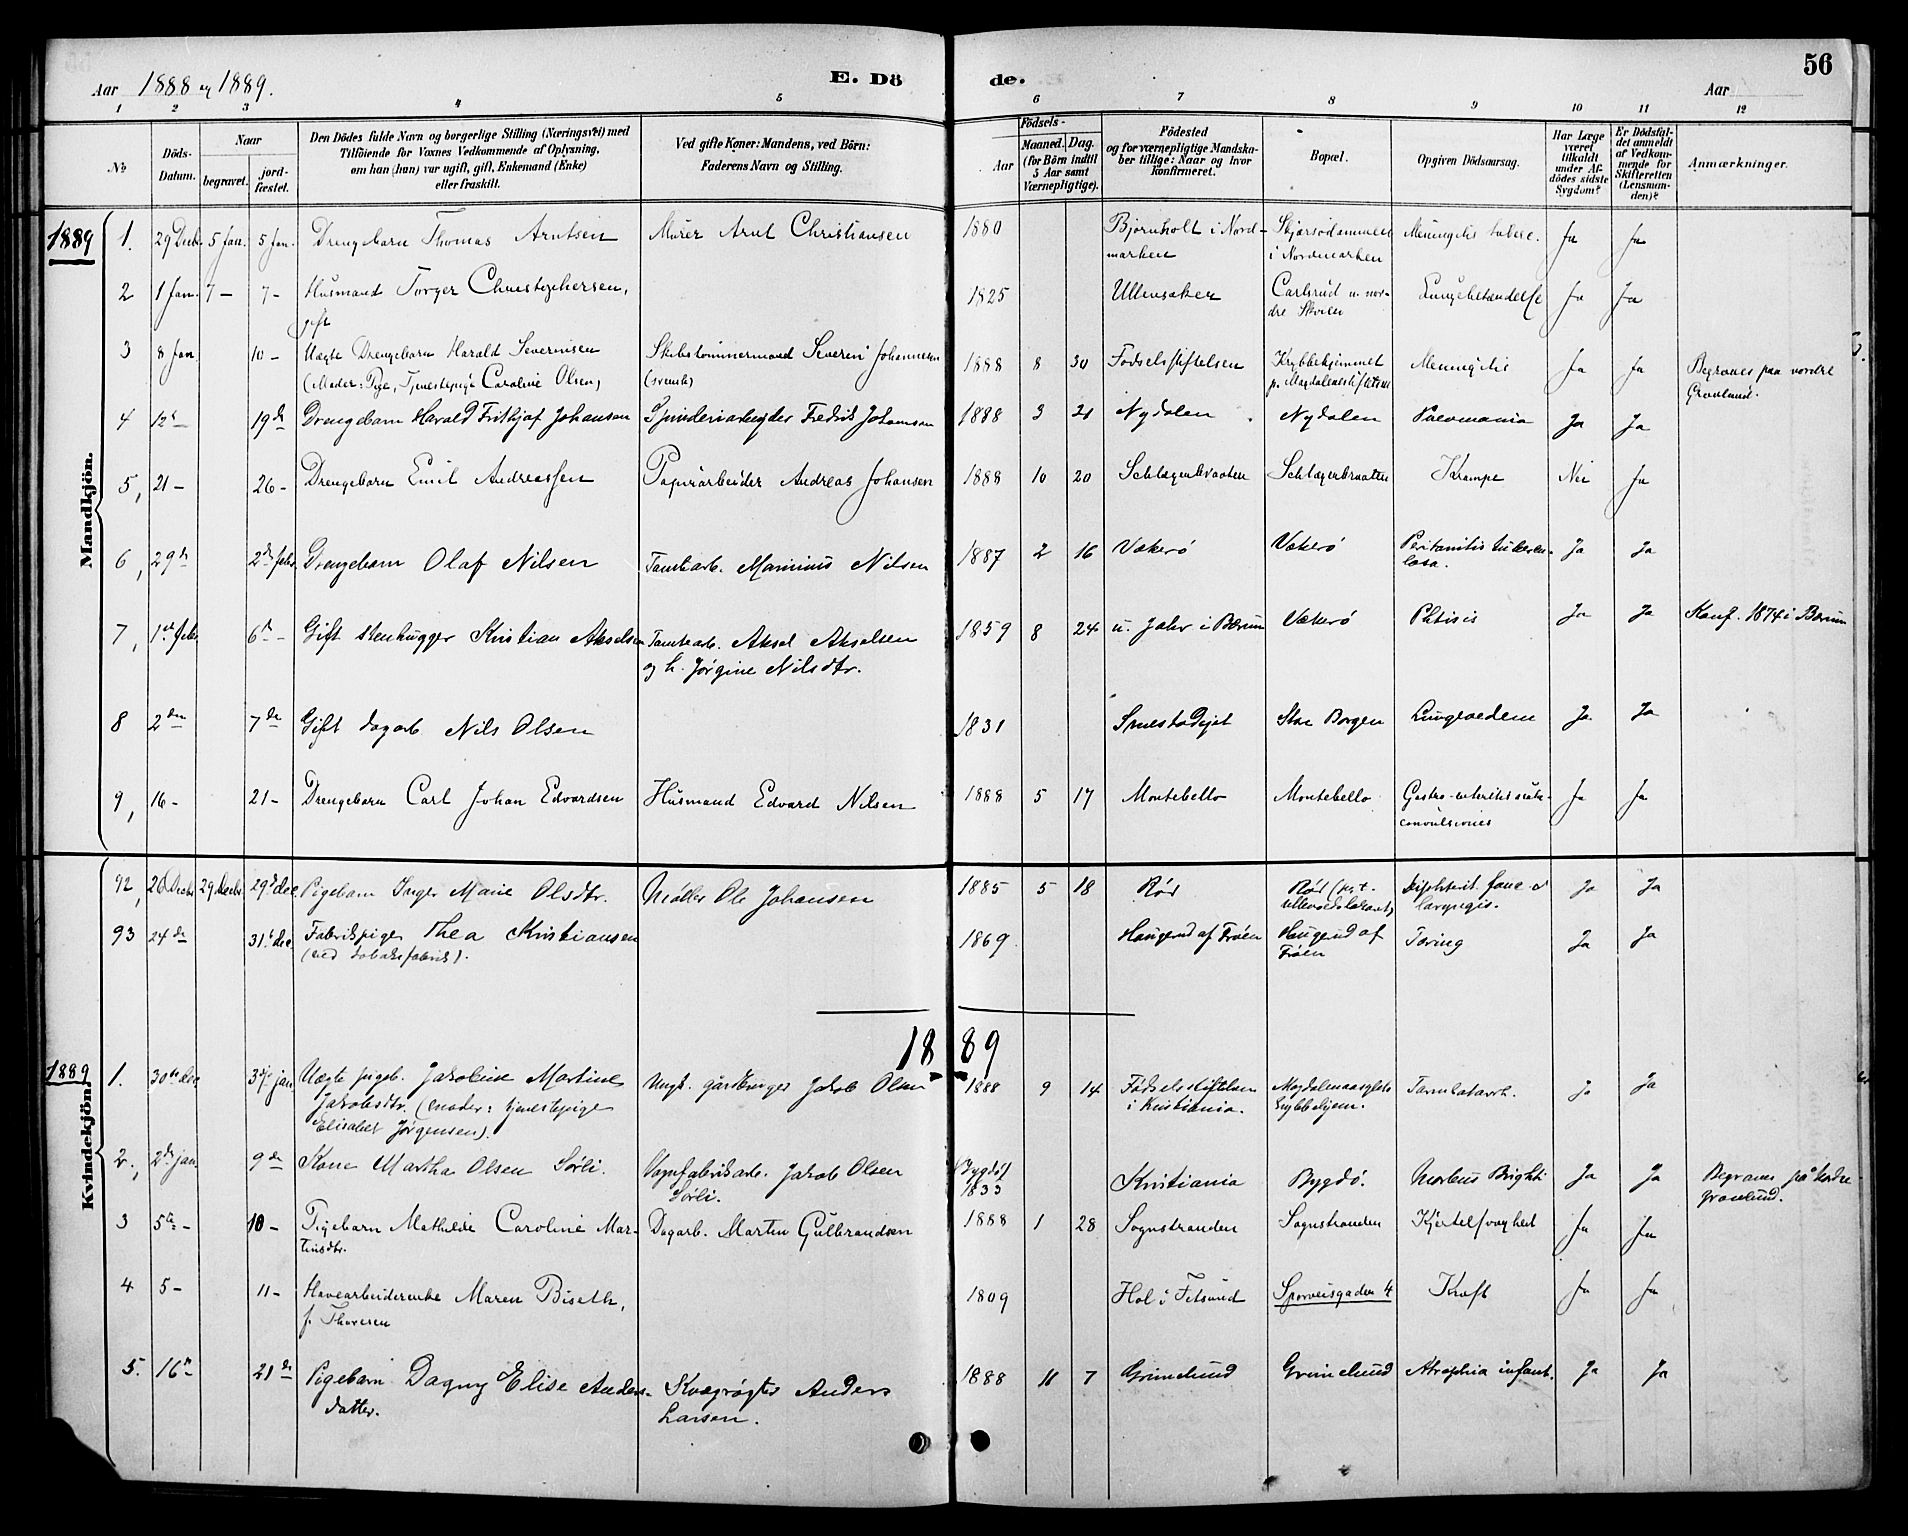 56
Aar 1888 og 1889.
E. Dö
de.
Aar
1 2 3 4 5 6 7 8 9 10 11 12
No
Döds-Datum.
Naar
begravet.
jord-fæstet.
Den Dödes fulde Navn og borgerlige Stilling (Næringsvei) med
Tilföiende for Voxnes Vedkommende af Oplysning,
om han (hun) var ugift, gift, Enkemand (Enke)
eller fraskilt.
Ved gifte Koner: Mandens, ved Börn:
Faderens Navn og Stilling.
Födsels-
Aar
Maaned. Dag.
(for Börn indtil
5 Aar samt
Værnepligtige).
Födested
og for værnepligtige Mandska-
ber tillige: Naar og hvor
konfirmeret.
Bopæl.
Opgiven Dödsaarsag.
Har Læge
været
tilkaldt
under Af-
dödes sidste
Sygdom?
Er Dödsfal-
det anmeldt
af Vedkom-
mende for
Skifteretten
(Lensman-
den)?
Anmærkninger.
Mandkjön.
1889 1. 29 Decb. 5 Jan. 5 Jan. Drengebarn Thomas Arntsen Murer Arnt Christiansen 1880 Bjørnholt i Nord- Skjærsødammen Meningitis tuberc. Ja Ja
marken i Nordmarken
2 1 Jan. 7 – 7 – Husmand Torger Christophersen, 1825 Ullensaker Carlsrud u. nor- Lungebetændelse Ja Ja
gift dre Skøien
3 8 Jan. 10 – Uægte Drengebarn Harald Severinsen Skibstømmermand Severin Johannesen 1888 8 30 Fødselsstiftelsen Krybbehjemmet Meningitis Ja Ja Begraves paa nordre
(Moder: Pige, Tjenestepige Caroline Olsen) (svensk) p. Magdalenastiftelsen Gravlund.
4 12 – 19de Drengebarn Harald Frithjof Johansen Spinderiarbejder Fredrik Johansen 1888 3 21 Nydalen Nydalen Pneumonia Ja Ja
5, 21 – 26 – Drengebarn Emil Andreassen Papirarbeider Andreas Johansen 1888 10 20 Schlagenbraaten Schlagenbraaten Krampe Nei Ja
6, 29de 2den febr. Drengebarn Olaf Nilsen Tomtearb. Marinius Nilsen 1887 2 16 Vækerø Vækerø Peritonitis tuberku- Ja Ja
losa.
7, 1ste febr. 6te – Gift stenhugger Kristian Akselsen Tomtearb. Aksel Akselsen 1859 8 24 u. Jahr i Bærum Vækerø Phtisis Ja Ja Konf. 1874 i Bærum
og h. Jørgine Nilsdtr.
8 2den 7de Gift dagarb. Nils Olsen 1831 Smestadejet Store Borgen Lungeødem Ja Ja
9, 16 – 21 – Drengebarn Carl Johan Edvardsen Husmand Edvard Nilsen 1888 5 17 Montebello Montebello Gastro-enteritis acuta Ja Ja
convulsiones
Kvindekjön.
92, 26 Decbr 29 Decbr 29de dec Pigebarn Inger Marie Olsdtr. Møller Ole Johansen 1885 5 18 Rød Rød (p.t. Diphterit. fauc. & Ja Ja
Ullevoldslazaret) laryngis.
93 24de 31te dec Fabrikpige Thea Kristiansen 1869 Haugerud af Frøen Haugerud af Tæring Ja Ja
(ved tobaksfabrik). Frøen
1889
1889 1. 30te dec 3dje jan. Uægte pigeb. Jakobine Martine Ungk. gårdbruger Jakob Olsen 1888 9 14 Fødselsstiftelsen Magdalenaasylets Tarmkatarrh. Ja Ja
Jakobsdtr. (moder: tjenestepige i Kristiania. krybbehjem.
Elisabet Jørgensen).
2, 2den jan. 9de Kone Martha Olsen Sørli. Vognfabrikarb. Jakob Olsen (Bygdø) 1833 Kristiania Bygdø. Morbus Brighti Ja Ja Begraves på Nordre
Sørli. gravlund.
3 5te – 10 – Pigebarn Mathilde Caroline Mar- Dagarb. Martin Gulbrandsen 1888 1 28 Sognstranden Sognstranden Kjertelsvaghed Ja Ja
tinsdtr.
4 5 – 11 – Havearbeiderenke Maren Biseth, 1809 Hol i Fetsund Sporveisgaden 4 Kræft Ja Ja
f. Thoresen
5. 16de 21de Pigebarn Dagny Elise Anders- Kvægrøgter Anders 1888 11 7 Grimelund Grimelund Atrophia infant. Ja Ja
datter. Larsen.